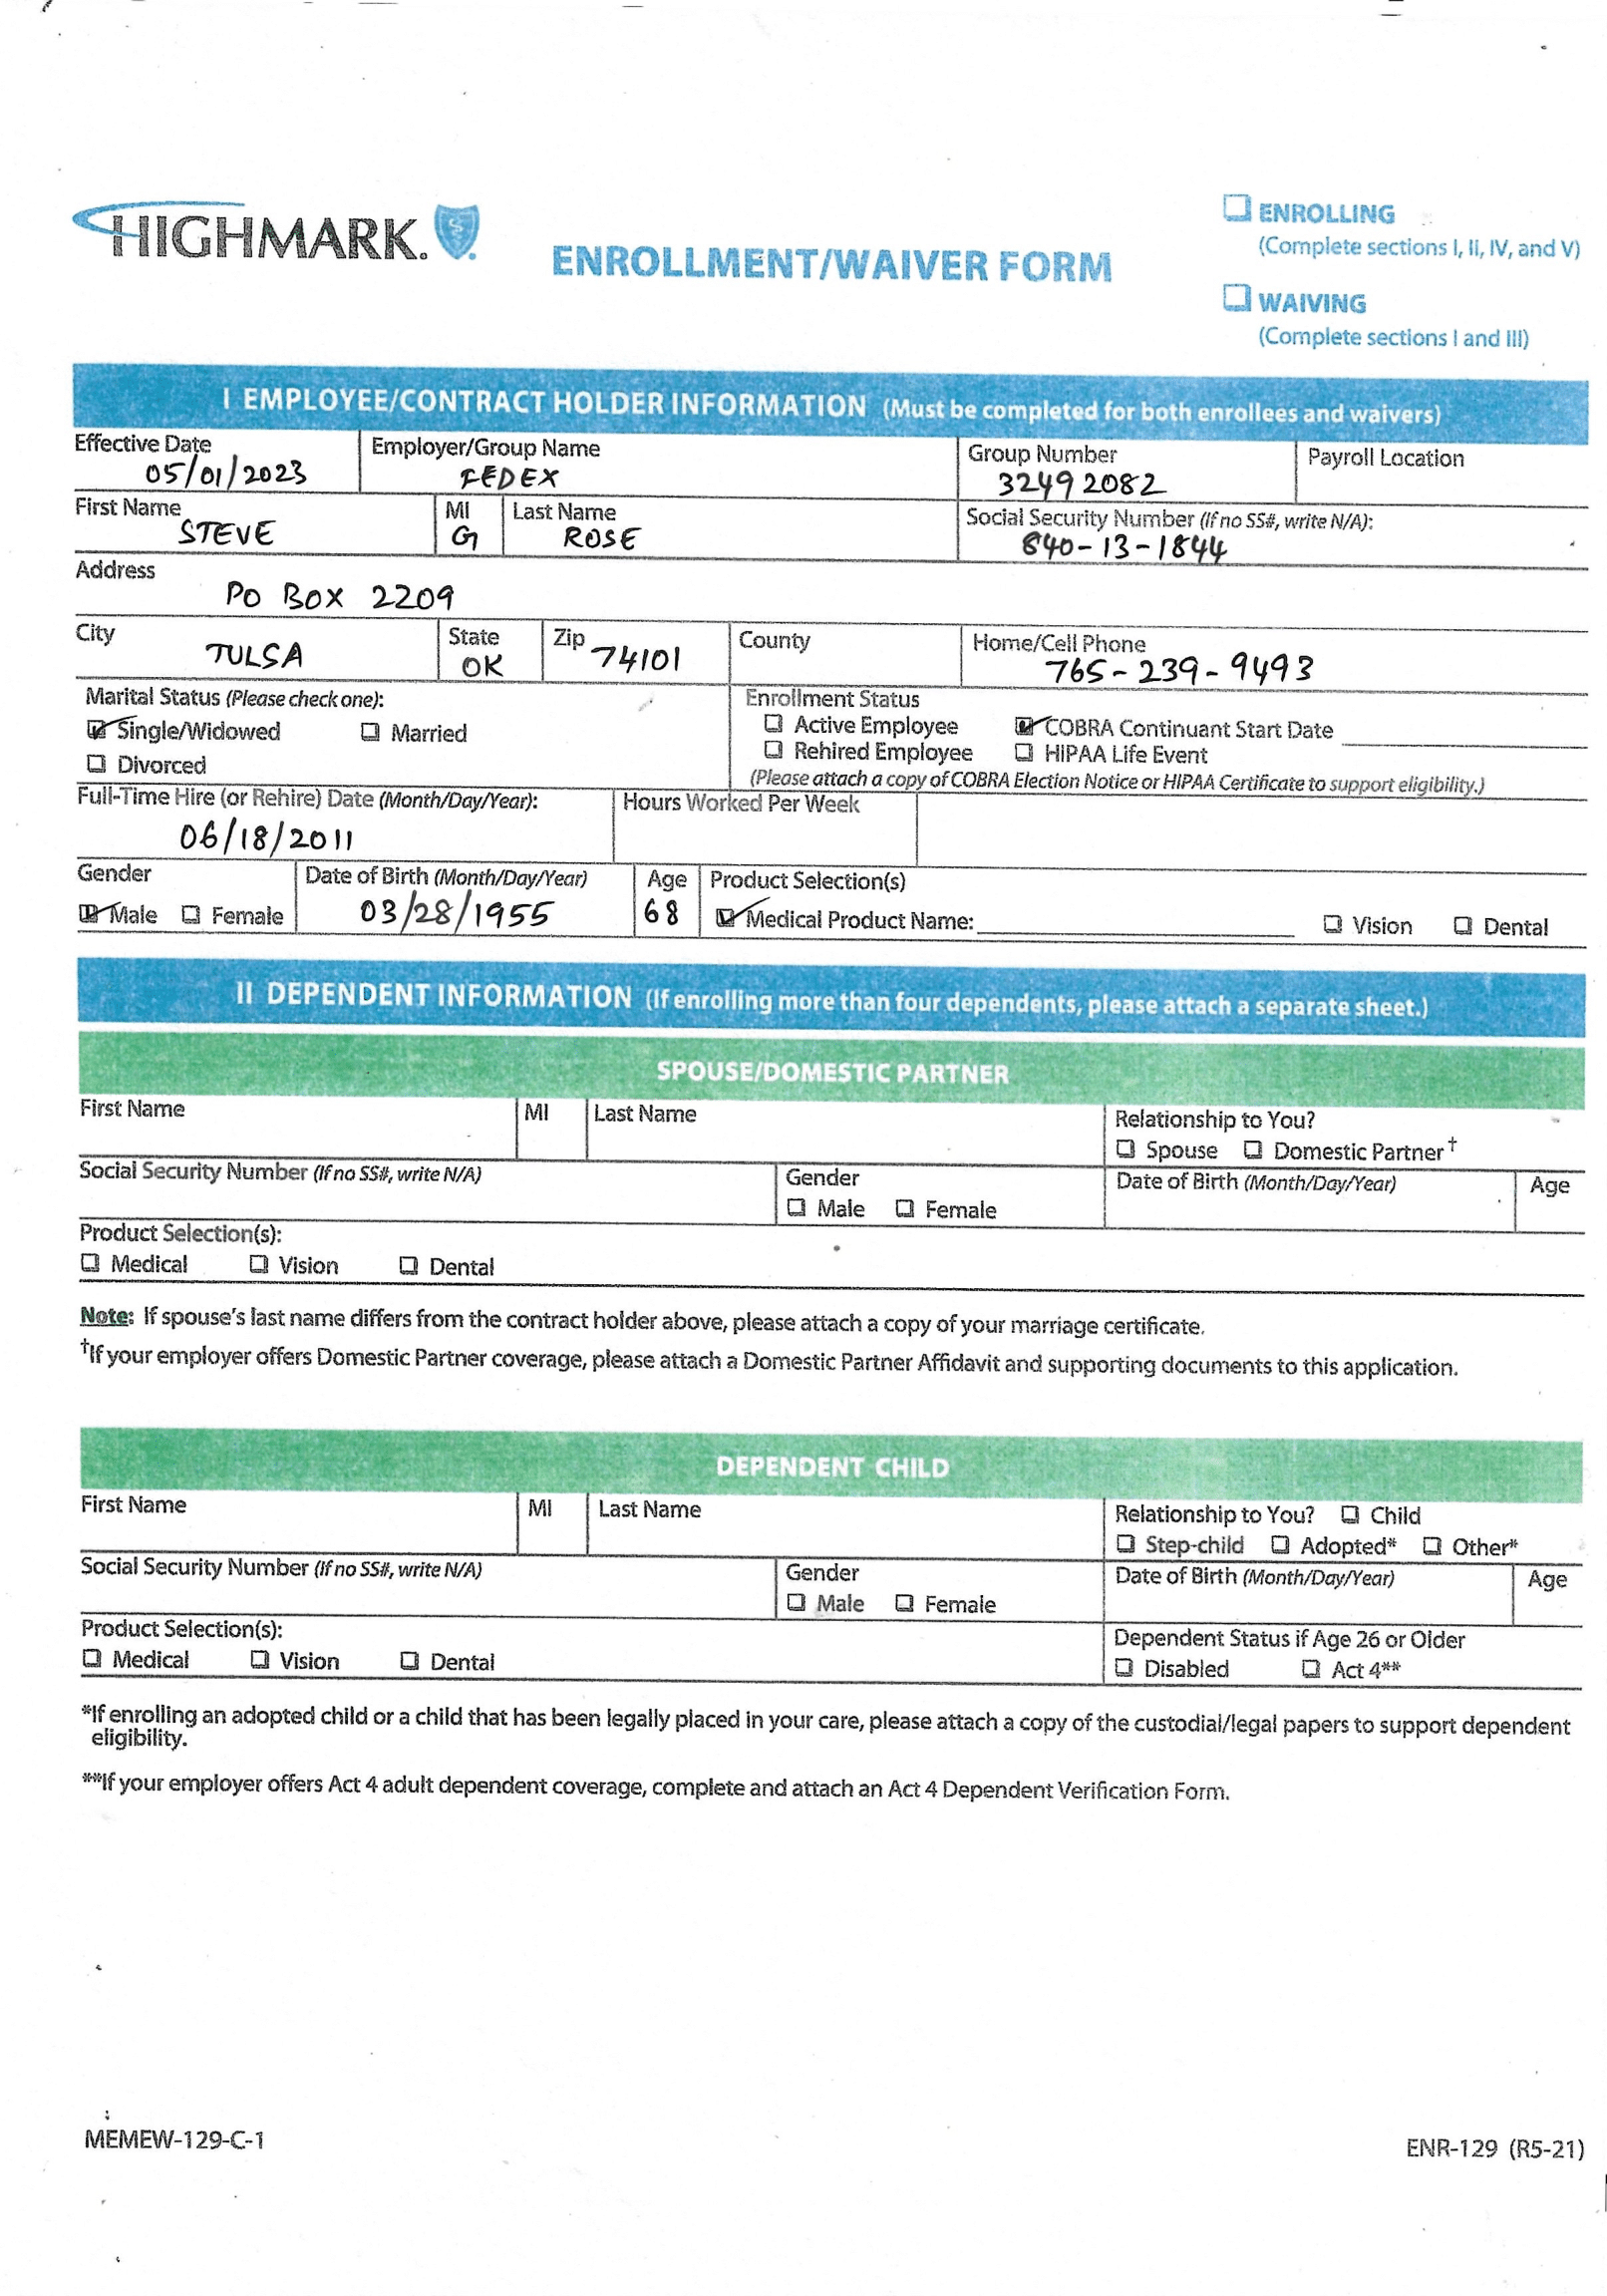 HIGHMARK.
ENROLLMENT/WAIVER FORM
ENROLLING
(Complete sections I, II, IV, and V)
WAIVING
(Complete sections I and III)
I EMPLOYEE/CONTRACT HOLDER INFORMATION (Must be completed for both enrollees and waivers)
Effective Date Employer/Group Name Group Number Payroll Location
05/01/2023 FEDEX 32492082
First Name MI Last Name Social Security Number (If no SS#, write N/A):
STEVE G ROSE 840-13-1844
Address
PO BOX 2209
City State Zip County Home/Cell Phone
TULSA OK 74101 765-239-9493
Marital Status (Please check one): Enrollment Status
Single/Widowed Married Active Employee COBRA Continuant Start Date
Divorced Rehired Employee HIPAA Life Event
(Please attach a copy of COBRA Election Notice or HIPAA Certificate to support eligibility.)
Full-Time Hire (or Rehire) Date (Month/Day/Year): Hours Worked Per Week
06/18/2011
Gender Date of Birth (Month/Day/Year) Age Product Selection(s)
Male Female 03/28/1955 68 Medical Product Name: Vision Dental
II DEPENDENT INFORMATION (If enrolling more than four dependents, please attach a separate sheet.)
SPOUSE/DOMESTIC PARTNER
First Name MI Last Name Relationship to You?
Spouse Domestic Partner†
Social Security Number (If no SS#, write N/A) Gender Date of Birth (Month/Day/Year) Age
Male Female
Product Selection(s):
Medical Vision Dental
Note: If spouse's last name differs from the contract holder above, please attach a copy of your marriage certificate.
†If your employer offers Domestic Partner coverage, please attach a Domestic Partner Affidavit and supporting documents to this application.
DEPENDENT CHILD
First Name MI Last Name Relationship to You? Child
Step-child Adopted* Other*
Social Security Number (If no SS#, write N/A) Gender Date of Birth (Month/Day/Year) Age
Male Female
Product Selection(s): Dependent Status if Age 26 or Older
Medical Vision Dental Disabled Act 4**
*If enrolling an adopted child or a child that has been legally placed in your care, please attach a copy of the custodial/legal papers to support dependent
eligibility.
**If your employer offers Act 4 adult dependent coverage, complete and attach an Act 4 Dependent Verification Form.
MEMEW-129-C-1 ENR-129 (R5-21)